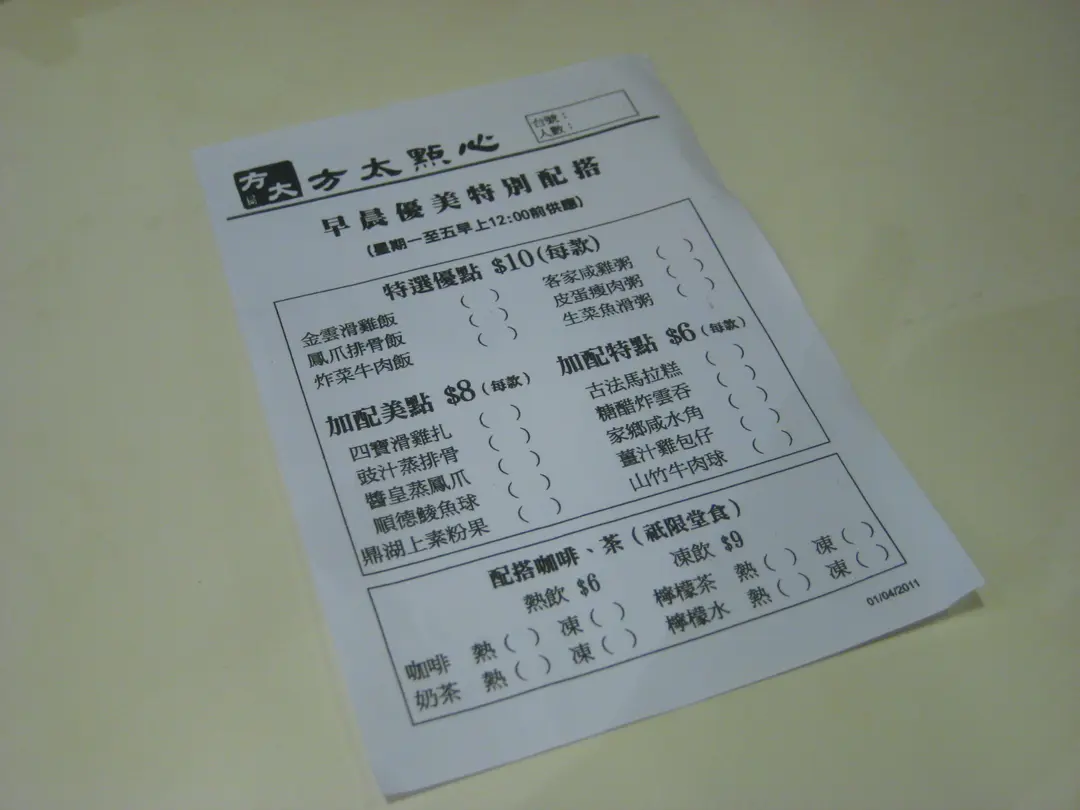 台號：
人數：
方太 方太點心
早晨優美特別配搭
(星期一至五早上12:00前供應)
特選優點 $10(每款)
金雲滑雞飯 ( )
鳳爪排骨飯 ( )
炸菜牛肉飯 ( )
客家咸雞粥 ( )
皮蛋瘦肉粥 ( )
生菜魚滑粥 ( )
加配美點 $8 (每款)
四寶滑雞扎 ( )
豉汁蒸排骨 ( )
醬皇蒸鳳爪 ( )
順德鯪魚球 ( )
鼎湖上素粉果 ( )
加配特點 $6 (每款)
古法馬拉糕 ( )
糖醋炸雲吞 ( )
家鄉咸水角 ( )
薑汁雞包仔 ( )
山竹牛肉球 ( )
配搭咖啡、茶 (祗限堂食)
熱飲 $6 凍飲 $9
咖啡 熱( ) 凍( ) 檸檬茶 熱( ) 凍( )
奶茶 熱( ) 凍( ) 檸檬水 熱( ) 凍( )
01/04/2011